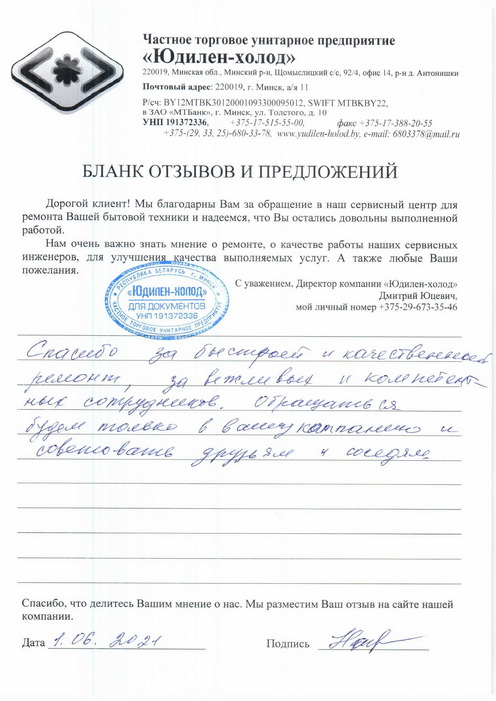 Частное торговое унитарное предприятие
«Юдилен-холод»
220019, Минская обл., Минский р-н, Щомыслицкий с/с, 92/4, офис 14, р-н д. Антонишки
Почтовый адрес: 220019, г. Минск, а/я 11
Р/сч: BY12MTBK30120001093300095012, SWIFT MTBKBY22,
в ЗАО «МТБанк», г. Минск, ул. Толстого, д. 10
УНП 191372336, +375-17-515-55-00, факс +375-17-388-20-55
+375-(29, 33, 25)-680-33-78, www.yudilen-holod.by, e-mail: 6803378@mail.ru
БЛАНК ОТЗЫВОВ И ПРЕДЛОЖЕНИЙ
Дорогой клиент! Мы благодарны Вам за обращение в наш сервисный центр для
ремонта Вашей бытовой техники и надеемся, что Вы остались довольны выполненной
работой.
Нам очень важно знать мнение о ремонте, о качестве работы наших сервисных
инженеров, для улучшения качества выполняемых услуг. А также любые Ваши
пожелания.
С уважением, Директор компании «Юдилен-холод»
Дмитрий Юцевич,
мой личный номер +375-29-673-35-46
РЕСПУБЛИКА БЕЛАРУСЬ г. МИНСК
«ЮДИЛЕН-ХОЛОД»
ДЛЯ ДОКУМЕНТОВ
УНП 191372336
ЧАСТНОЕ ТОРГОВОЕ УНИТАРНОЕ ПРЕДПРИЯТИЕ
Спасибо за быстрой и качественной
ремонт, за вежливых и компетент-
ных сотрудников. Обращаться
будем только в вашу компанию и
советовать друзьям и соседям.
Спасибо, что делитесь Вашим мнение о нас. Мы разместим Ваш отзыв на сайте нашей
компании.
Дата 1.06.2021 Подпись